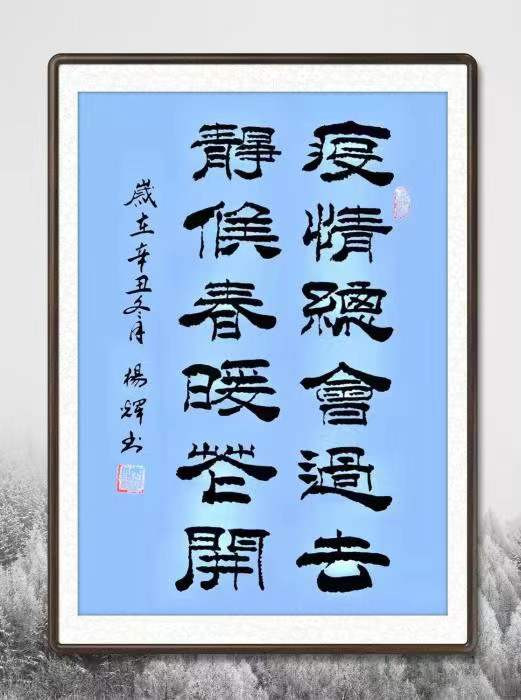 疫情總會過去
靜候春暖花開
歲在辛丑冬月 楊輝书